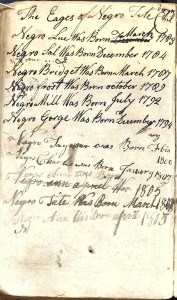 The Eages of Negro Tite 23
Negro Lue Was Born March 1789
Negro Sal Was Born December 1784
Negro Bridget Was Born March 1787
Negro Foot Was Born october 1789
Negro Mill Was Born July 1792
Negro Gorge Was Born December 1794
Negro was Born
1800
Negro Was Born Janaary 1807
Negro ann april 1805
Negro Tite Was Born March
Negro ann Was Born april 1805